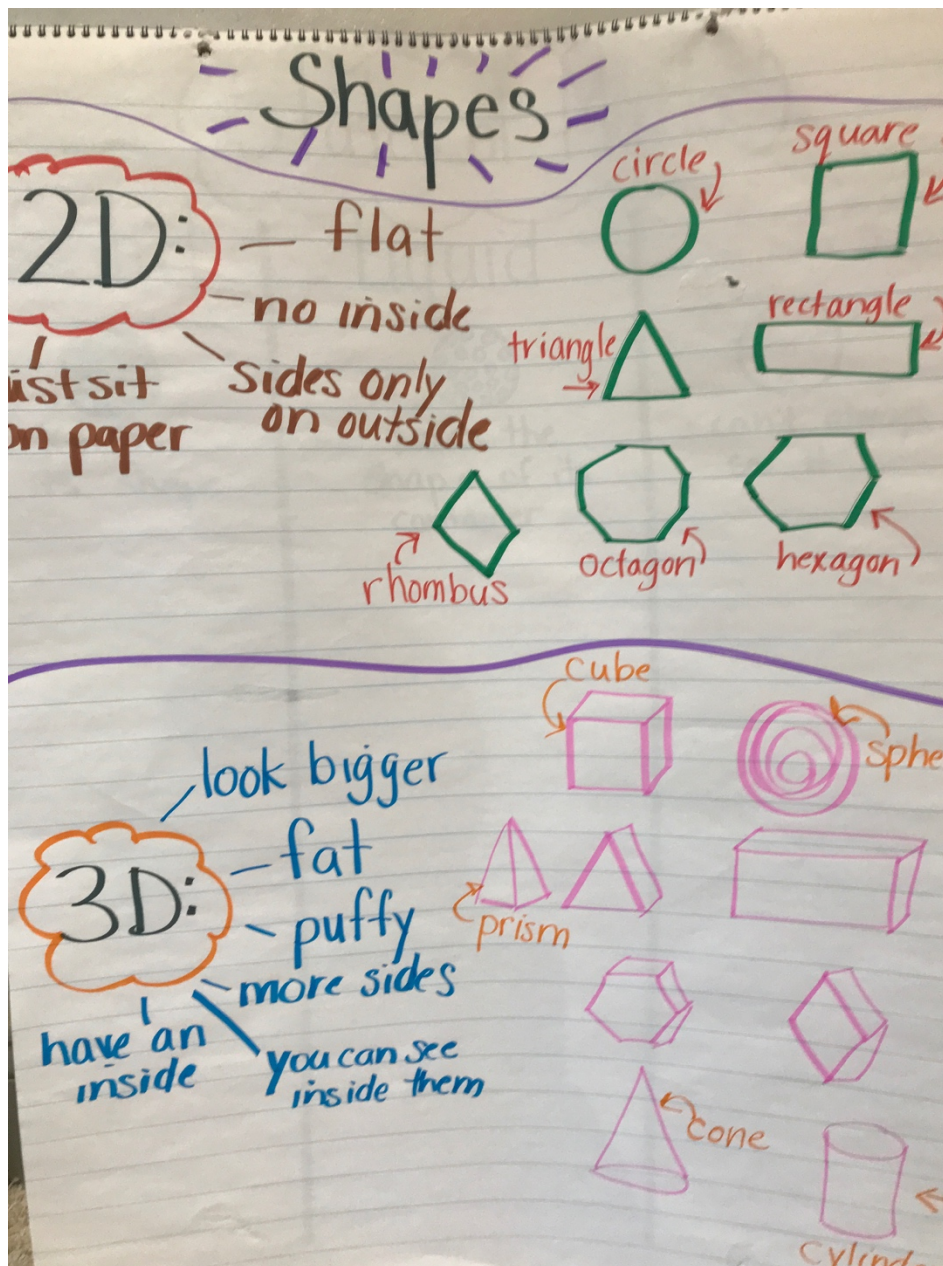 Shapes
2D:
flat
no inside
sides only
on outside
sit
paper
circle
square
triangle
rectangle
rhombus
octagon
hexagon
3D:
look bigger
fat
puffy
more sides
you can see
inside them
have an
inside
cube
sphe
prism
cone
cylind